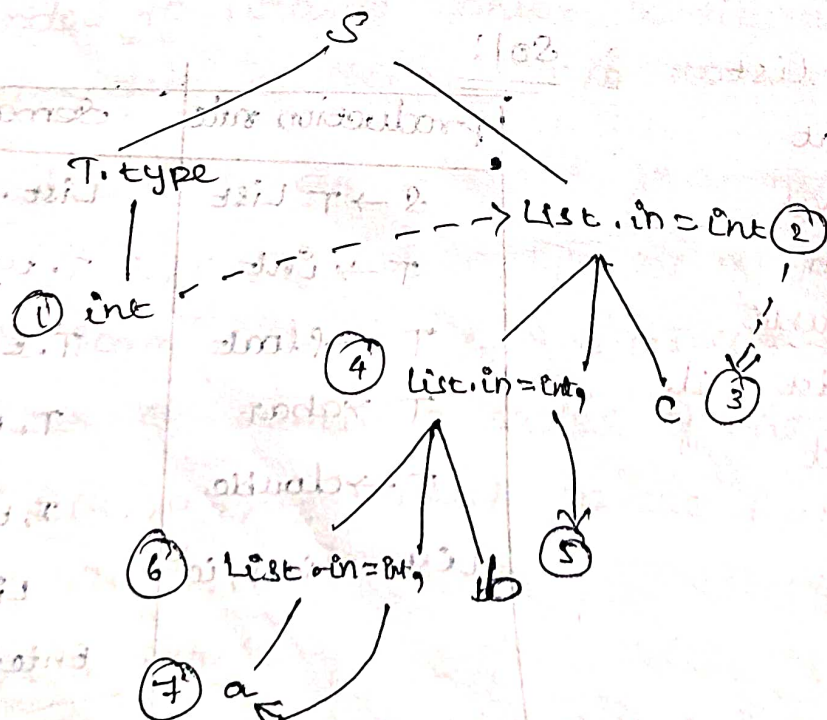 S
T. type
List.in = int ②
① int
④ List.in = int, c ③
⑥ List.in = int, b ⑤
⑦ a